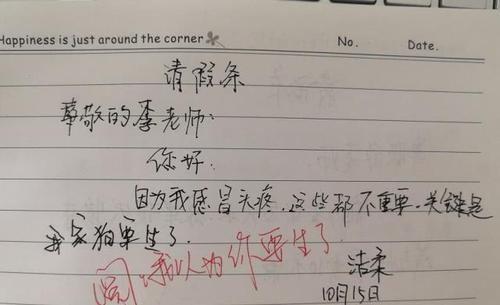 Happiness is just around the corner No. Date.
请假条
尊敬的李老师:
你好:
因为我感冒头疼,这些都不重要,关键是
我家狗要生了.
阅,我以为你要生了
洁柔
10月15日